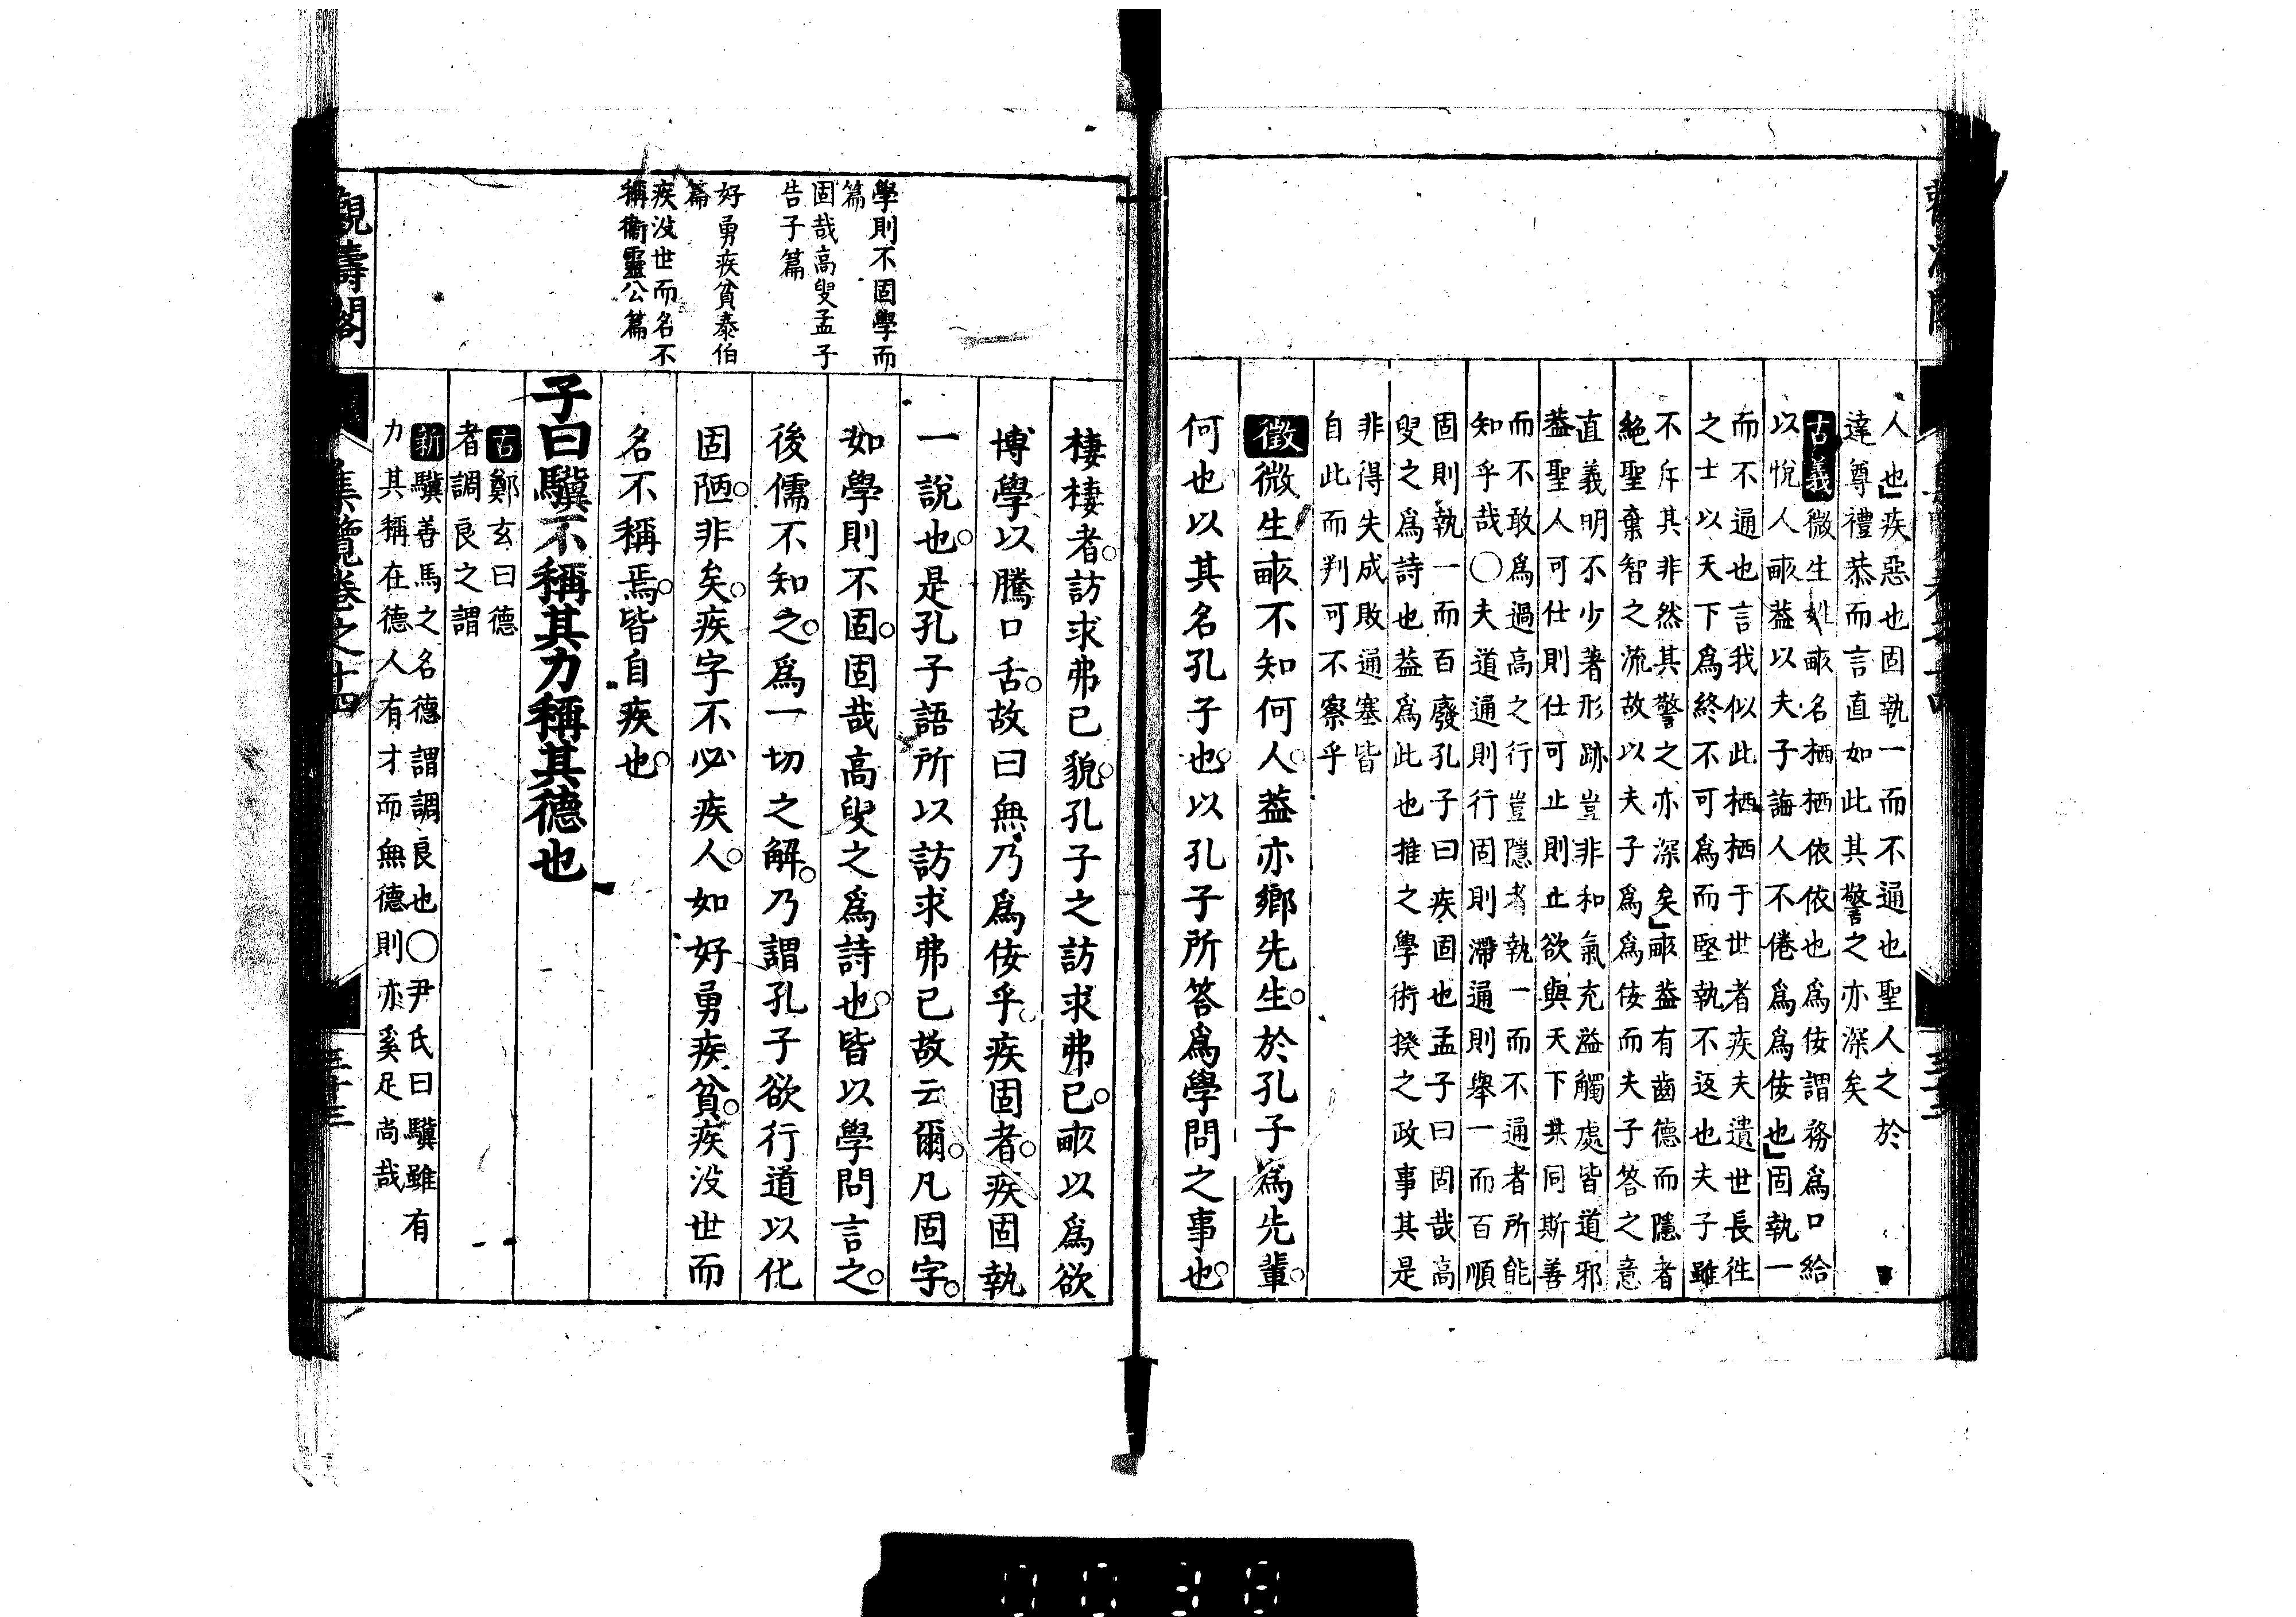 人也」疾惡也固執一而不通也聖人之於
達尊禮恭而言直如此其警之亦深矣
古義微生姓畝名栖栖依依也爲佞謂務爲口給
以悅人畝葢以夫子誨人不倦爲爲佞也」固執一
而不通也言我似此栖栖于世者疾夫遺世長徃
之士以天下爲終不可爲而堅執不返也夫子雖
不斥其非然其警之亦深矣」畝葢有齒德而隱者
絕聖棄智之流故以夫子爲爲佞而夫子答之意
直義明不少著形跡豈非和氣充溢觸處皆道邪
葢聖人可仕則仕可止則止欲與天下共同斯善
而不敢爲過高之行豈隱者執一而不通者所能
知乎哉○夫道通則行固則滯通則舉一而百順
固則執一而百廢孔子曰疾固也孟子曰固哉高
叟之爲詩也葢爲此也推之學術揆之政事其是
非得失成敗通塞皆
自此而判可不察乎
徵微生畝不知何人葢亦鄉先生於孔子爲先輩
何也以其名孔子也以孔子所答爲學問之事也
學則不固學而
篇
固哉高叟孟子
告子篇
好勇疾貧泰伯
篇
疾没世而名不
稱衞靈公篇
棲棲者訪求弗已貌孔子之訪求弗已畝以爲欲
博學以騰口舌故曰無乃爲佞乎疾固者疾固執
一說也是孔子語所以訪求弗已故云爾凡固字
如學則不固固哉高叟之爲詩也皆以學問言之
後儒不知之爲一切之解乃謂孔子欲行道以化
固陋非矣疾字不必疾人如好勇疾貧疾没世而
名不稱焉皆自疾也
子曰驥不稱其力稱其德也
古鄭玄曰德
者調良之謂
新驥善馬之名德謂調良也○尹氏曰驥雖有
力其稱在德人有才而無德則亦奚足尚哉
觀濤閣
集覽卷之十四
三十三
0038